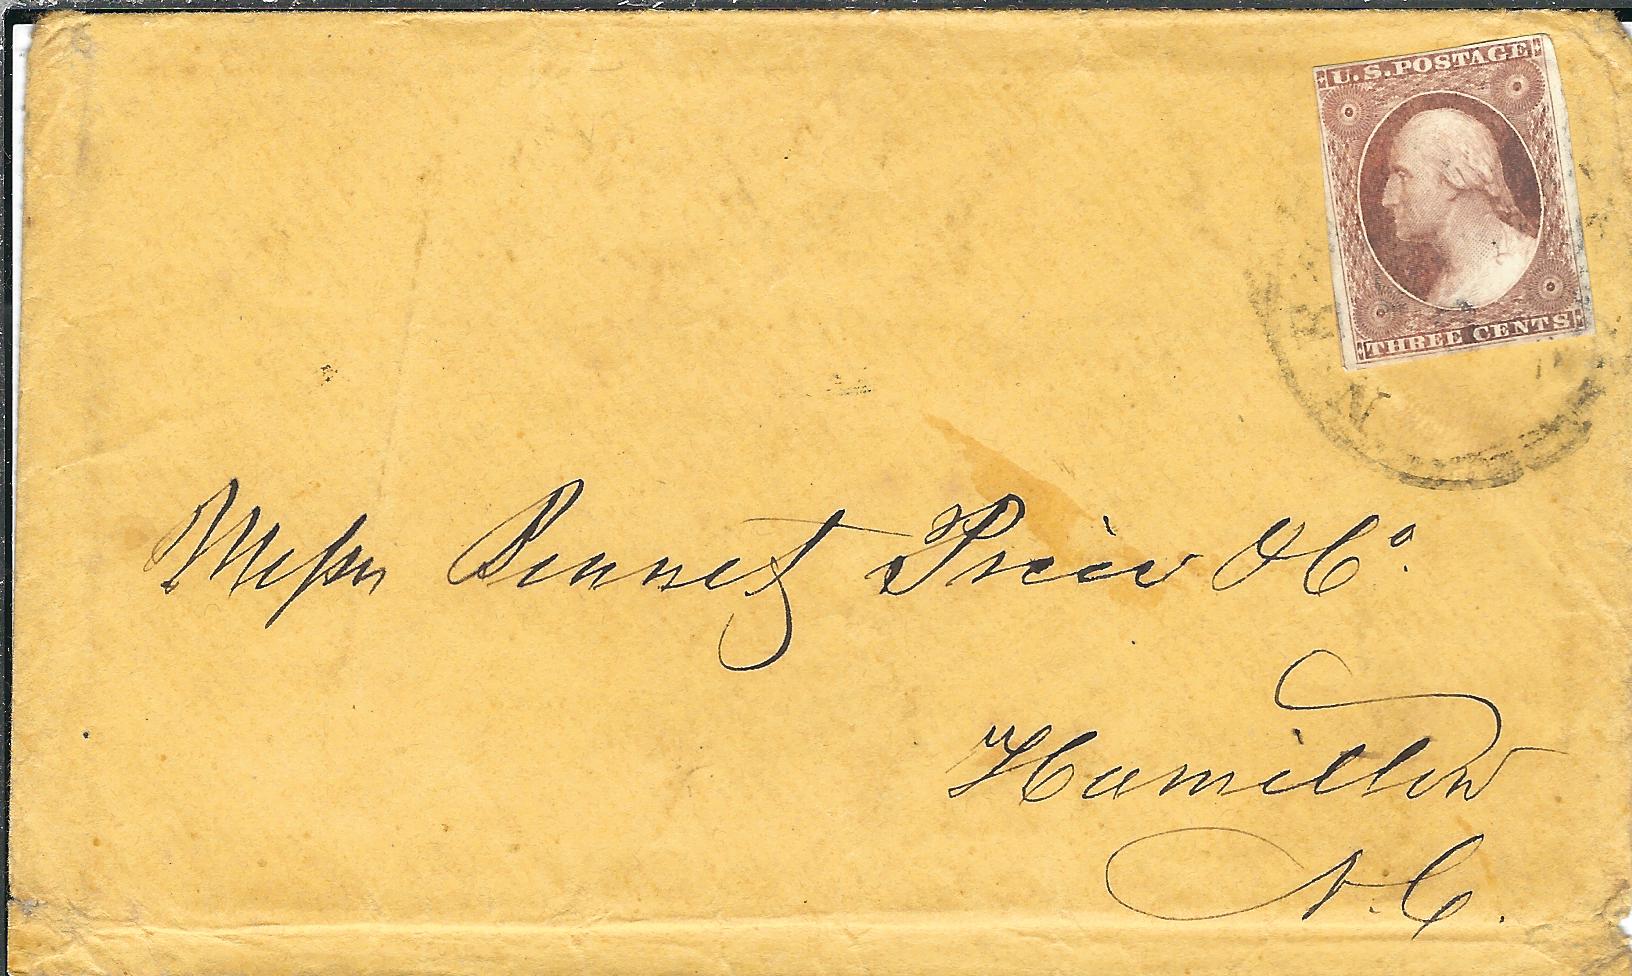 U.S. POSTAGE
THREE CENTS
Messrs Bennet Price & Co.
Hamilton
N.C.